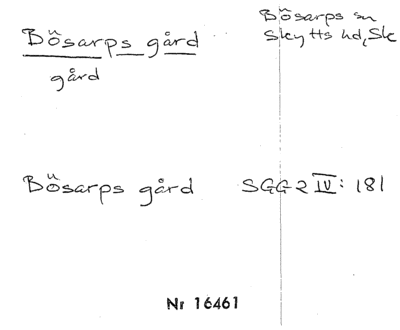 Bösarps gård
gård
Bösarps sn
Skytts hd, Sk
Bösarps gård SGG 2 IV: 181
Nr 16461